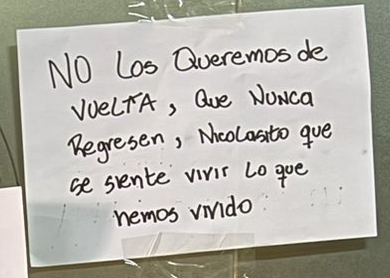 NO Los Queremos de
VUELTA, Que NUNCA
Regresen, Nicolasito que
se siente vivir Lo que
hemos vivido